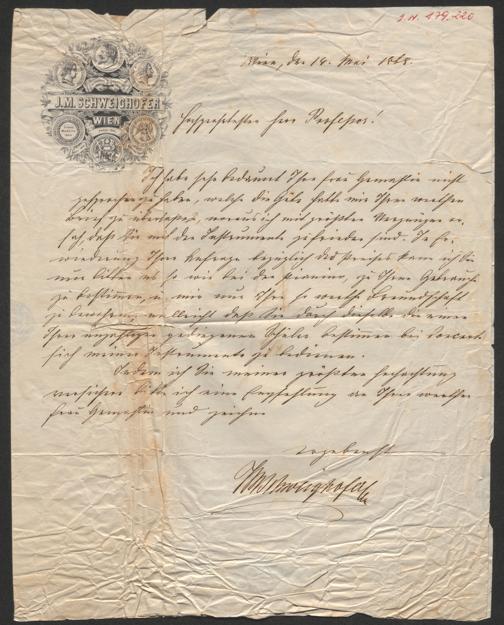 I. N. 179.220
J.M. SCHWEIGHOFER
WIEN
Wien, den 14. Mai 1868.
Hochgeehrter Herr Professor!
Ich habe sehr bedauert Ihre Frau Gemahlin nicht
gesprochen zu haben, welche die Güte hatte mir Ihren werthen
Brief zu, woraus ich mit größtem Vergnügen er-
sah, daß Sie mit dem Instrumente zufrieden sind. In Er-
wiederung Ihrer Anfrage bezüglich des Preises kann ich Sie
nur bitten es so wie bei dem Pianino, zu Ihrem Gebrauch
zu bestimmen, u. mir nur Ihre so werthe Freundschaft
zu bewahren, vielleicht daß Sie durch dieselbe
Ihrer gediegenen Schüler bestimmen bei Concert
sich meiner Instrumente zu bedienen.
Indem ich Sie meiner größten Hochachtung
versichere bitte ich eine Empfehlung an Ihre werthe
Frau Gemahlin und zeichne
ergebenst
JMSchweighofer